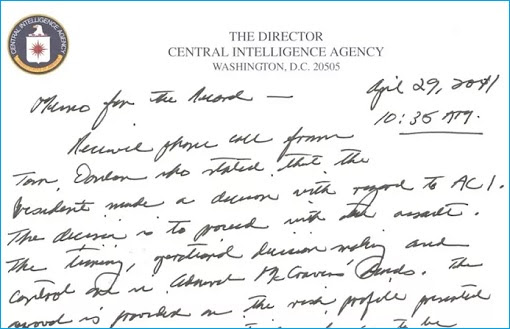 CENTRAL INTELLIGENCE AGENCY
UNITED STATES OF AMERICA
THE DIRECTOR
CENTRAL INTELLIGENCE AGENCY
WASHINGTON, D.C. 20505
April 29, 2011
10:35 AM.
Memo for the Record —
Received phone call from
Tom Donilon who stated that the
President made a decision with regard to AC1.
The decision is to proceed with the assault.
The timing, operational decision making and
control are in Admiral McRaven's hands. The
approval is provided on the risk profile presented
to be